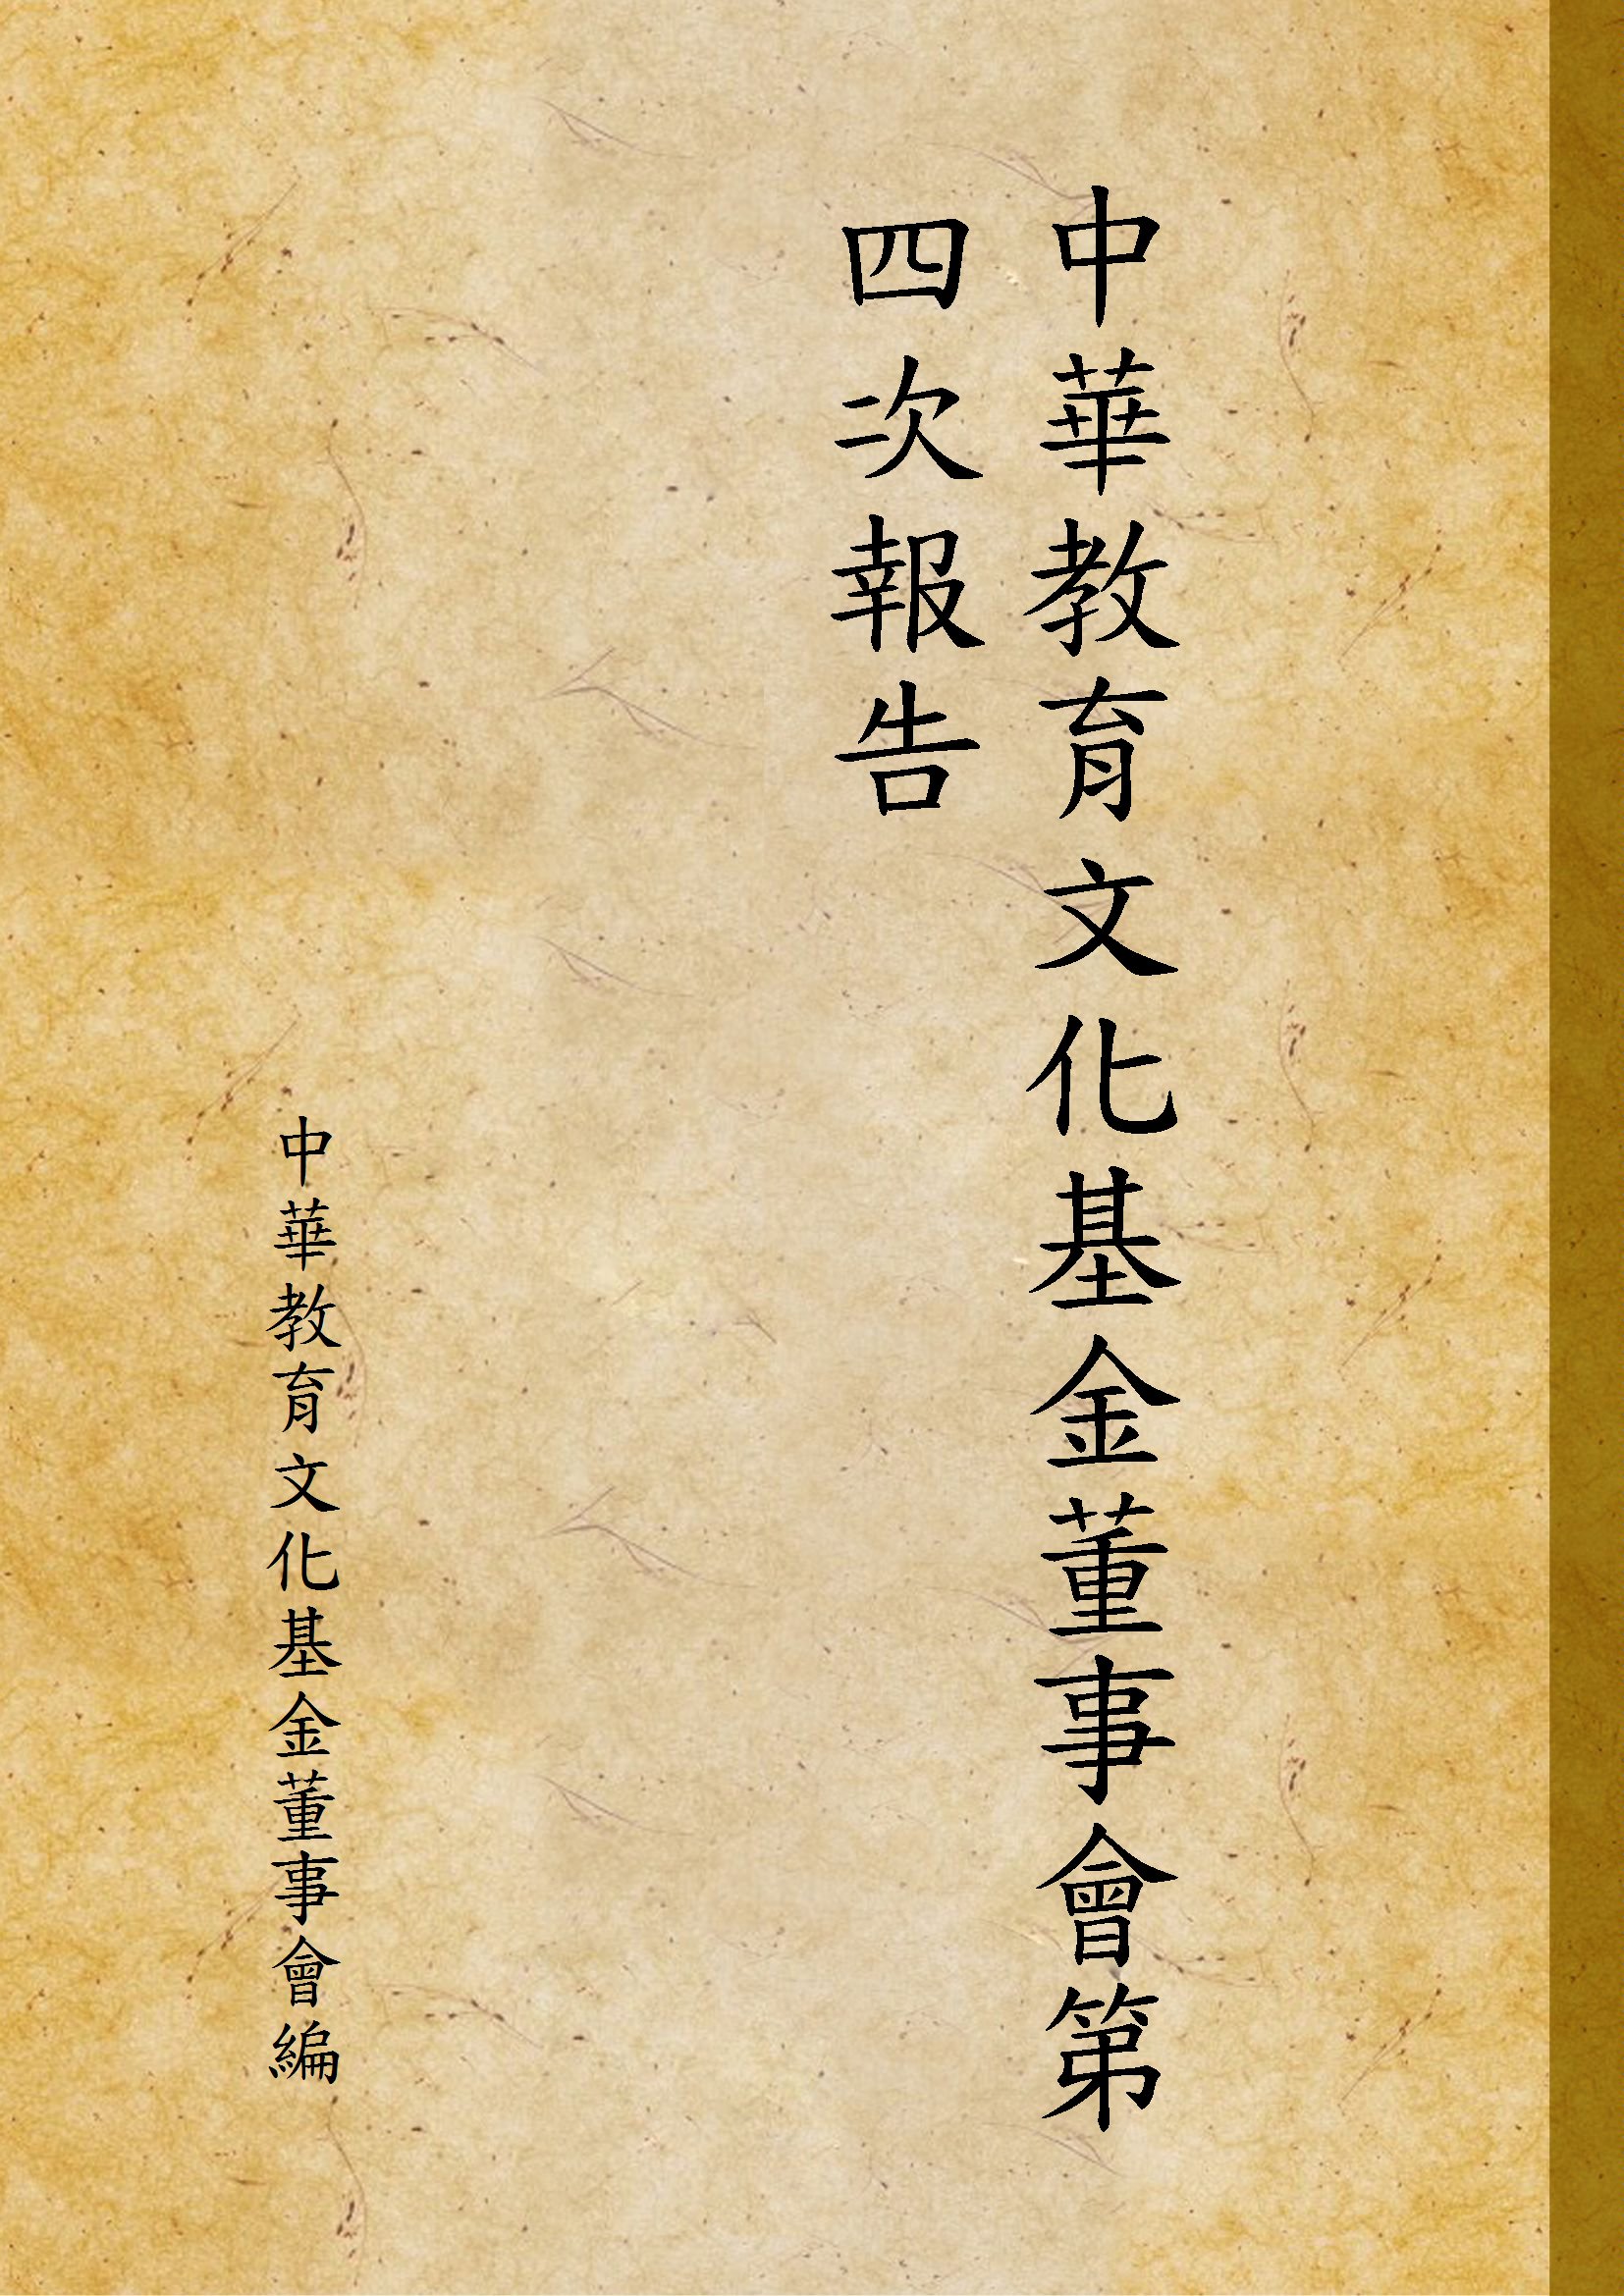 中華教育文化基金董事會第
四次報告
中華教育文化基金董事會編